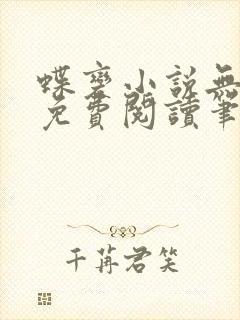 蝶變小說無
免費閱讀筆
千苒君笑